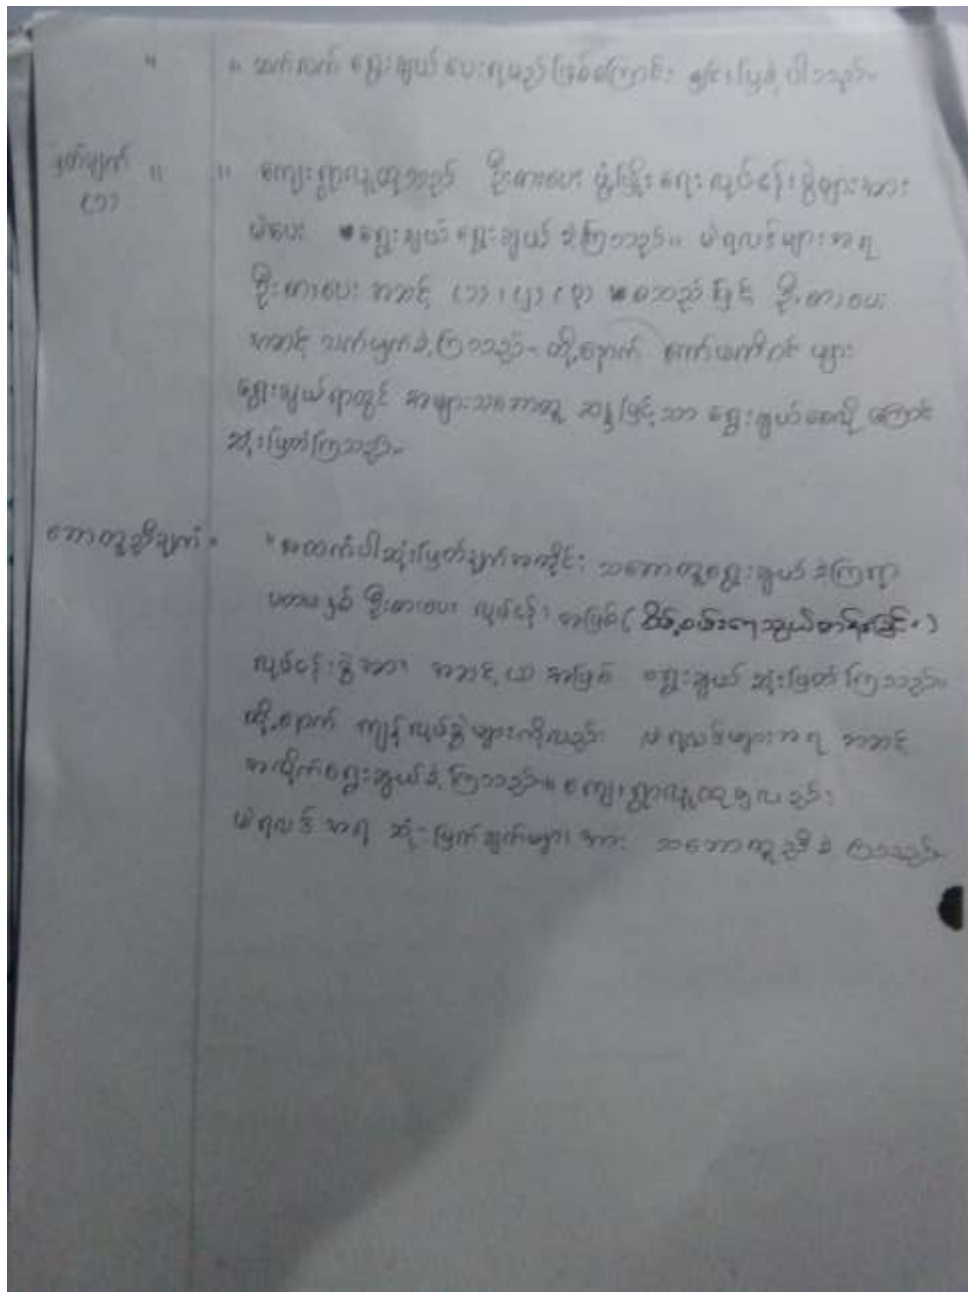 " " ဆက်လက် ရွေးချယ် ပေးရမည် ဖြစ်ကြောင်း ရှင်းပြခဲ့ ပါသည်။
မှတ်ချက် " " ကျေးရွာလူထုသည် ဦးစားပေး ဖွံ့ဖြိုးရေး လုပ်ငန်းခွဲများအား
(၁)
မဲပေး ရွေးချယ် ရွေးချယ် ခဲ့ကြသည်။ မဲရလဒ်များအရ
ဦးစားပေး အဆင့် (၁) (၂) (၃) စသည်ဖြင့် ဦးစားပေး
အဆင့် သတ်မှတ်ခဲ့ကြသည်။ ထို့နောက် ကော်မတီဝင် များ
ရွေးချယ်ရာတွင် အများသဘောတူ ဆန္ဒဖြင့်သာ ရွေးချယ်စေလို ကြောင်း
ဆုံးဖြတ်ကြသည်။
သဘောတူညီချက် " " အထက်ပါဆုံးဖြတ်ချက်အတိုင်း သဘောတူရွေးချယ် ခဲ့ကြရာ
ပထမနှစ် ဦးစားပေး လုပ်ငန်း အဖြစ် (စိမ့်စမ်းရေသွယ်တန်းခြင်း)
လုပ်ငန်းခွဲအား အဆင့် ၁ အဖြစ် ရွေးချယ် ဆုံးဖြတ် ကြသည်။
ထို့နောက် ကျန်လုပ်ငန်းခွဲများကိုလည်း မဲရလဒ်များအရ အဆင့်
အလိုက်ရွေးချယ်ခဲ့ကြသည်။ ကျေးရွာလူထုမှလည်း
မဲရလဒ် အရ ဆုံးဖြတ်ချက်များ အား သဘောတူညီခဲ့ ကြသည်။